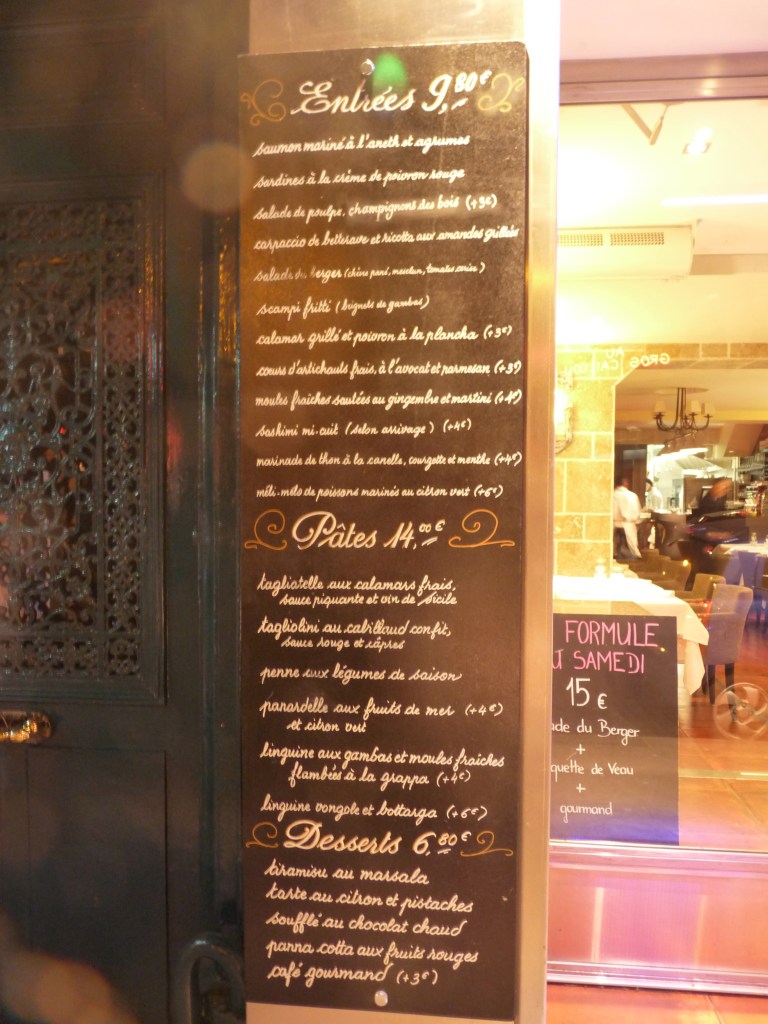 Entrées 9,80€
saumon mariné à l'aneth et agrumes
sardines à la crème de poivron rouge
salade de poulpe, champignons des bois (+3€)
carpaccio de betterave et ricotta aux amandes grillées
salade du berger (chèvre pané, mesclun, tomates cerise)
scampi fritti (beignets de gambas)
calamar grillé et poivron à la plancha (+3€)
cœurs d'artichauts frais, à l'avocat et parmesan (+3€)
moules fraîches sautées au gingembre et martini (+4€)
sashimi mi-cuit (selon arrivage) (+4€)
marinade de thon à la canelle, courgette et menthe (+4€)
méli-mélo de poissons marinés au citron vert (+6€)
Pâtes 14,00€
tagliatelle aux calamars frais,
sauce piquante et vin de Sicile
tagliolini au cabillaud confit,
sauce rouge et câpres
penne aux légumes de saison
parardelle aux fruits de mer (+4€)
et citron vert
linguine aux gambas et moules fraîches
flambées à la grappa (+4€)
linguine vongole et bottarga (+6€)
Desserts 6,80€
tiramisu au marsala
tarte au citron et pistaches
soufflé au chocolat chaud
panna cotta aux fruits rouges
café gourmand (+3€)
FORMULE
SAMEDI
15 €
de du Berger
+
quette de Veau
+
gourmand